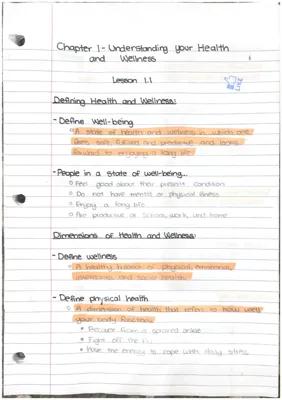 Chapter 1 - Understanding your Health
and Wellness
Lesson 1.1
Defining Health and Wellness:
- Define Well-being
A state of health and wellness in which one
feels safe, fulfilled and productive and looks
forward to enjoying a long life
- People in a state of well-being...
Feel good about their present condition
Do not have mental or physical illness
Enjoy a long life
Are productive at school, work, and home
Dimensions of Health and Wellness:
- Define wellness
A healthy balance of physical, emotional,
intellectual and social health
- Define physical health
A dimension of health that refers to how well
your body functions
Recover from a sprained ankle
Fight off the flu
Have the energy to cope with daily stress